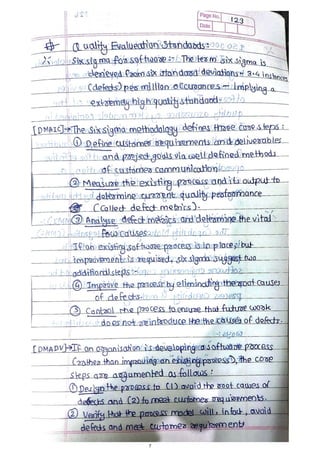 Page No. 123
Date
Quality Evaluation Standards :
Six sigma for software :- The term six sigma is
derieved from six standard deviations - 3.4 instances
(defects) per million occurances - implying a
extremely high quality standard
[DMAIC] → The six sigma methodology defines three core steps :
① Define customer requirements and deliverables
and project goals via well defined methods
of customer communication
② Measure the existing process and its output to
determine current quality performance
(Collect defect metrics).
③ Analyse defect metrics and determine the vital
few causes.
If an existing software process is in place, but
improvement is required, six sigma suggest two
additional steps :-
④ Improve the process by eliminating the root causes
of defects.
⑤ Control the process to ensure that future work
does not reintroduce the the causes of defects.
[DMADV] → If an organisation is developing a software process
(rather than improving an existing process), the core
steps are augumented as follows :
① Design the process to (1) avoid the root causes of
defects and (2) to meet customer requirements.
② Verify that the process model will, in fact, avoid
defects and meet customer requirement